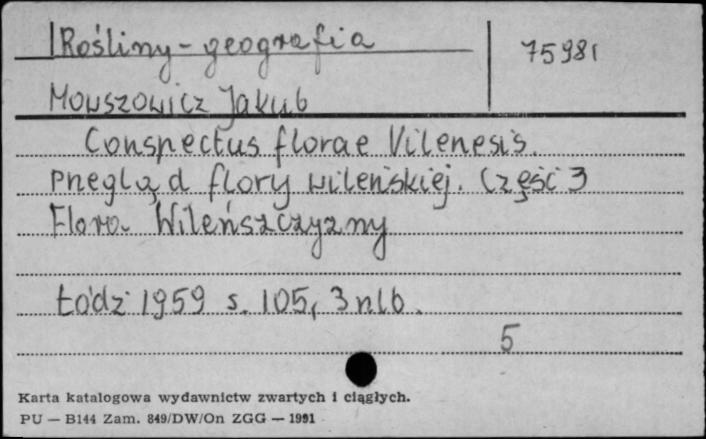 Rośliny - geografia
75981
Mowszowicz Jakub
Conspectus florae Vilenesis.
Przegląd flory wileńskiej. Część 3
Flora Wileńszczyzny
Łódź 1959 s. 105, 3 nlb.
5
Karta katalogowa wydawnictw zwartych i ciągłych.
PU — B144 Zam. 849/DW/On ZGG — 1991